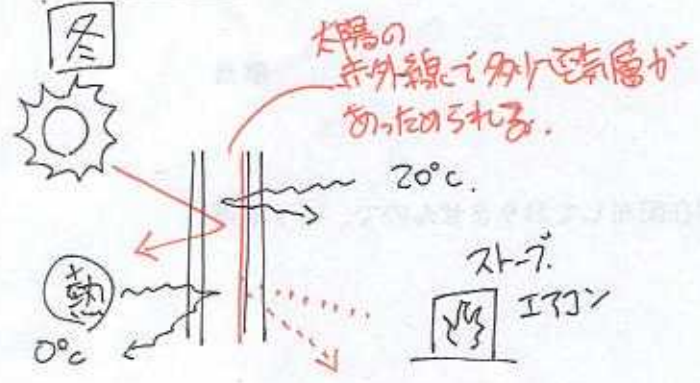 冬
太陽の
赤外線で多少空気層が
あっためられる.
20°c.
熱
0°c
ストーブ.
エアコン